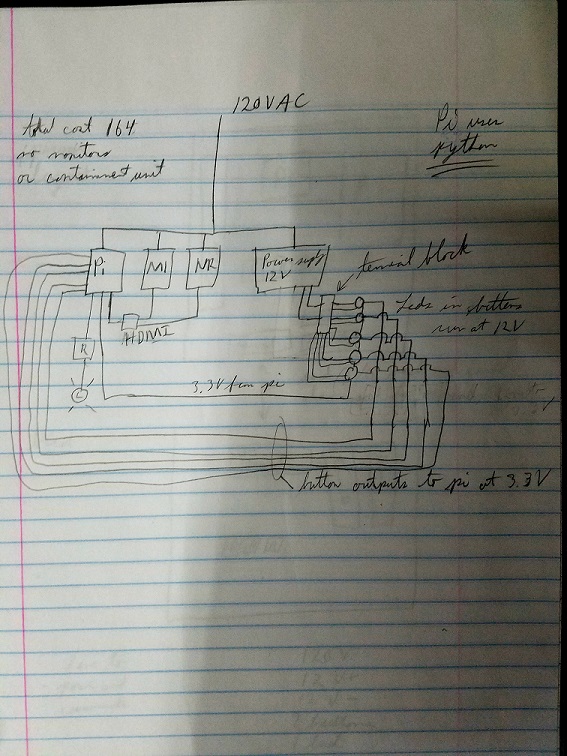 120VAC
total cost 164
no monitors
or containment unit
Pi uses
python
Pi
M1
Power supply
12V
terminal block
Leds in buttons
run at 12V
HDMI
R
L
3.3V from pi
button outputs to pi at 3.3V